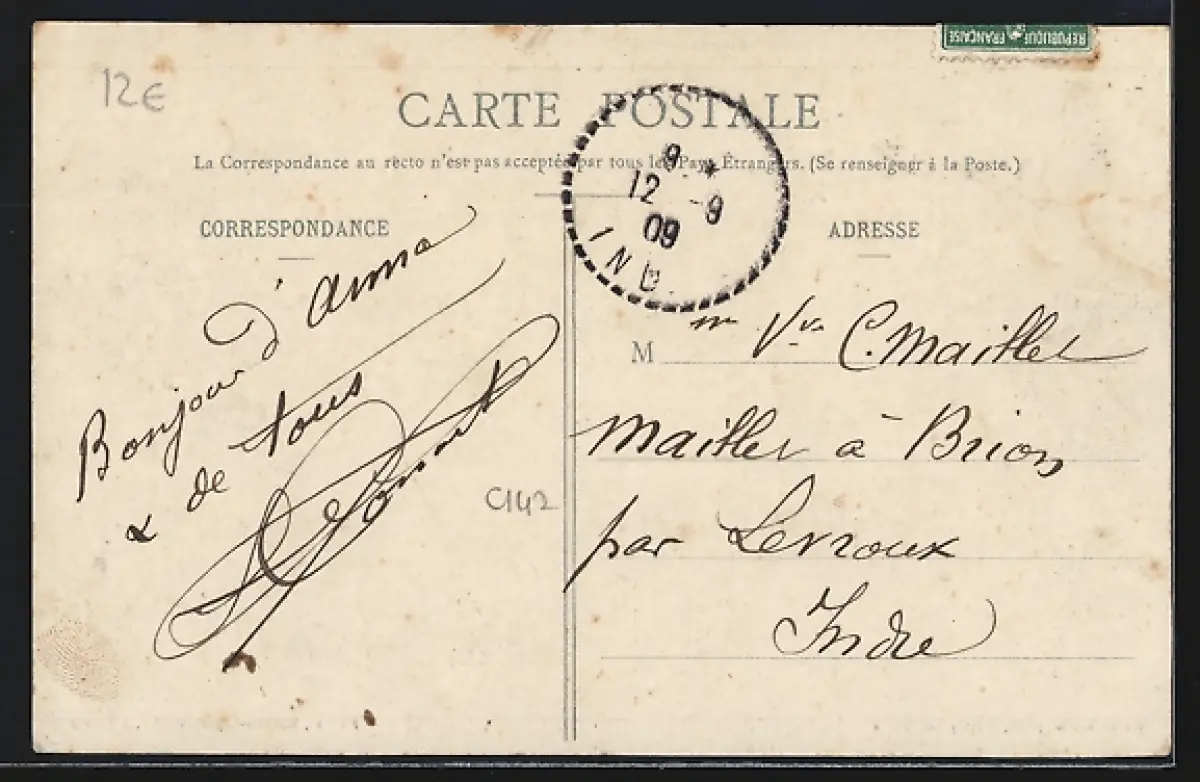 REPUBLIQUE FRANÇAISE
12€
CARTE POSTALE
La Correspondance au recto n'est pas acceptée par tous les Pays Étrangers. (Se renseigner à la Poste.)
9 *
12 -9
09
IND
CORRESPONDANCE
Bonjour d'Anna
& de tous
C142
ADRESSE
M me Vve C. Maillet
Maillet à Brion
par Levroux
Indre